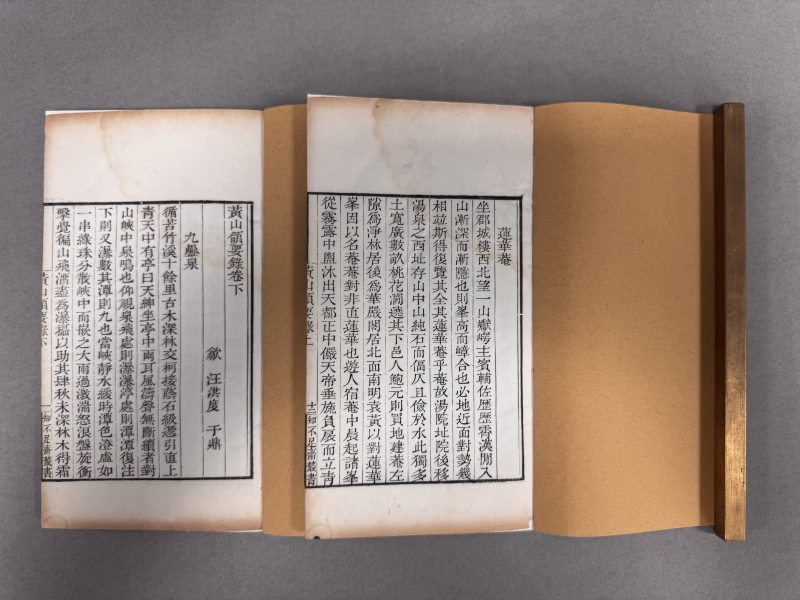 蓮華庵
坐郡城樓西北望一山嶽崿主賓輔佐歷歷霄漢閒入
山漸深而漸隱也則峯高而嶂合也必地近面對勢幾
相竝斯得復覽其全其蓮華庵乎庵故湯院址院後移
湯泉之西址存山中山純石而偪仄且儉於水此獨多
土寬廣數畝桃花澗遶其下邑人鮑元則買地建庵左
隙為淨林居後為華嚴閣居北面南明袁黃以對蓮華
峯因以名庵庵對非直蓮華也遊人宿庵中晨起諸峯
從霧露中盥沐出天都正中儼天帝垂旒負扆而立青
黃山領要錄上
十三知不足齋叢書
黃山領要錄卷下
歙 汪洪度 于鼎
九疊泉
循苦竹溪十餘里古木深林交柯接蔭石級遞引直上
青天中有亭曰天紳坐亭中兩耳風濤聲無斷續者對
山峽中泉鳴也仰視泉飛處則瀑瀑渟處則潭潭復注
下則又瀑數其潭則九也當峽靜水緩時潭色澄虛如
一串綠珠分散峽中而嵌之大雨過激湍怒浪盤旋衝
擊覺徧山飛湍盡為瀑福以助其肆秋末深林木得霜
黃山領要錄下
一知不足齋叢書